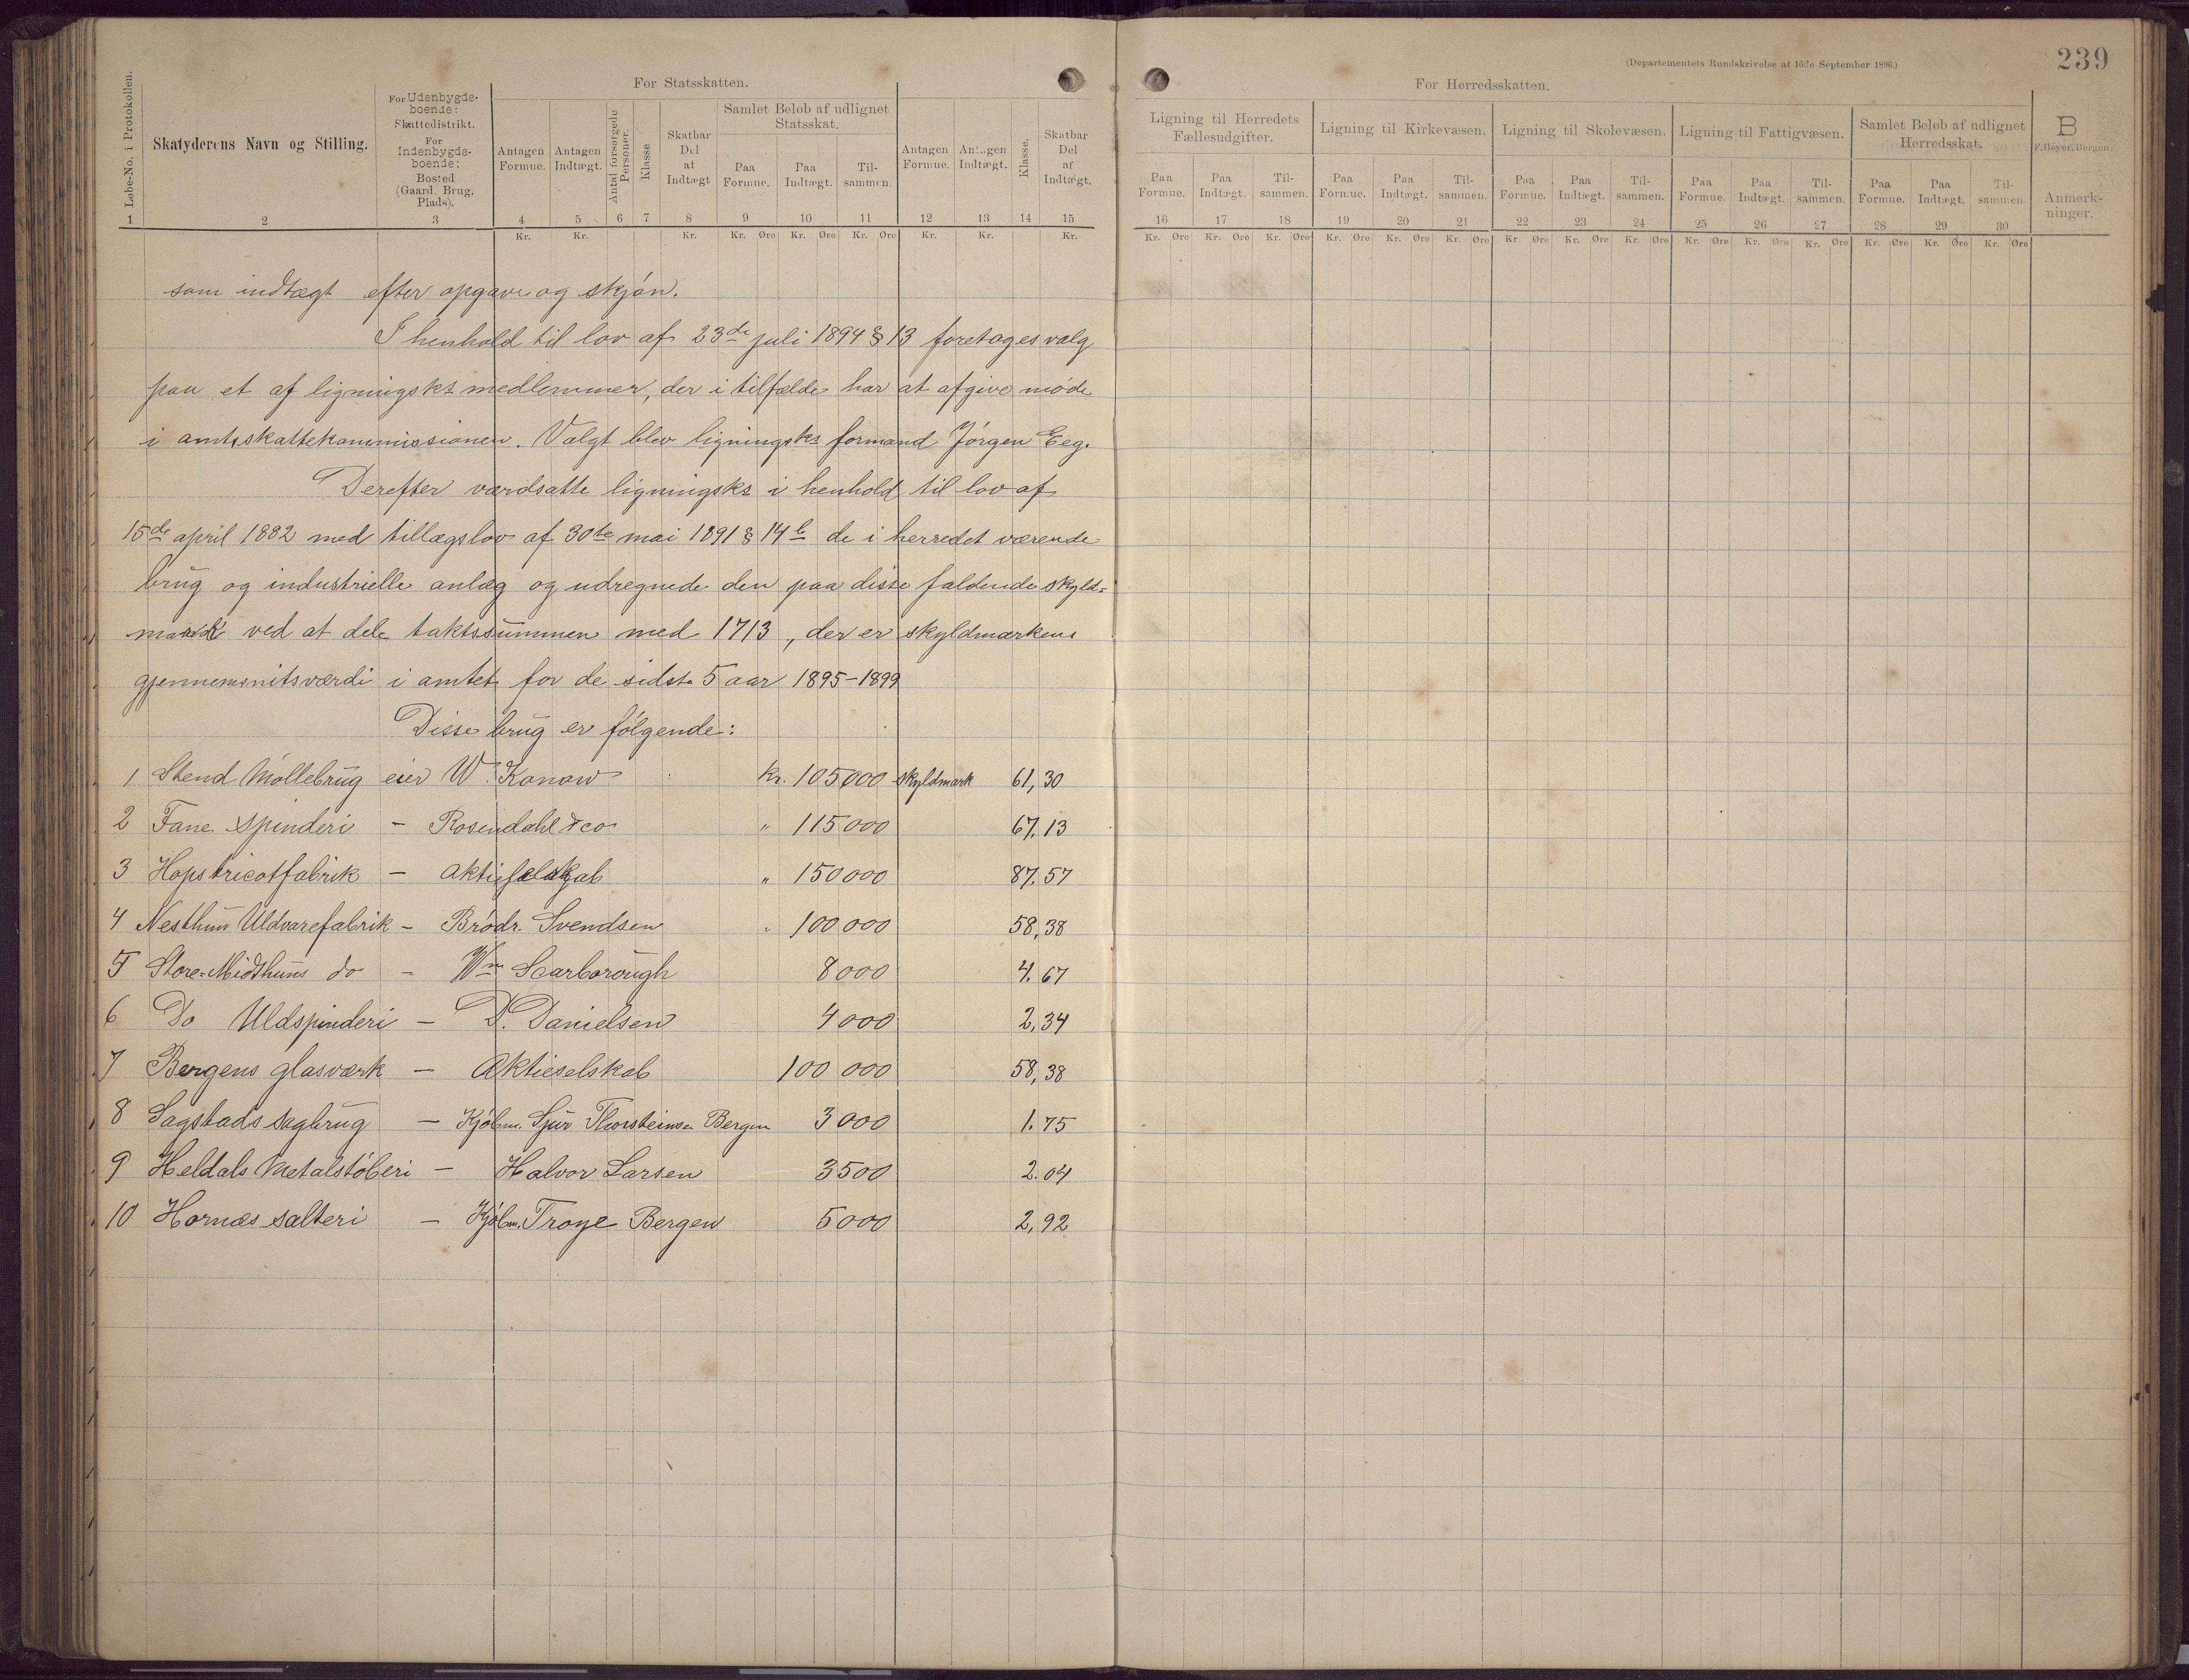 239
(Departementets Rundskrivelse af 16de September 1896.)
For Statsskatten.
For Herredsskatten.
Løbe-No. i Protokollen.
Skatyderens Navn og Stilling.
For Udenbygds-
boende:
Skattedistrikt.
For
Indenbygds-
boende:
Bosted
(Gaard, Brug,
Plads).
Antagen Formue.
Antagen Indtægt.
Antal forsørgede Personer.
Klasse
Skatbar Del af Indtægt
Samlet Beløb af udlignet Statsskat.
Paa Formue.
Paa Indtægt.
Til-sammen.
Antagen Formue.
Antagen Indtægt.
Klasse.
Skatbar Del af Indtægt.
Ligning til Herredets Fællesudgifter.
Ligning til Kirkevæsen.
Ligning til Skolevæsen.
Ligning til Fattigvæsen.
Samlet Beløb af udlignet Herredsskat.
B
F. Beyer, Bergen.
Paa Formue. Paa Indtægt. Til-sammen. Paa Formue. Paa Indtægt. Til-sammen. Paa Formue. Paa Indtægt. Til-sammen. Paa Formue. Paa Indtægt. Til-sammen. Paa Formue. Paa Indtægt. Til-sammen.
Anmerk-
ninger.
1 2 3 4 5 6 7 8 9 10 11 12 13 14 15 16 17 18 19 20 21 22 23 24 25 26 27 28 29 30
Kr. Kr. Kr. Kr. Øre Kr. Øre Kr. Øre Kr. Kr. Kr. Kr. Øre Kr. Øre Kr. Øre Kr. Øre Kr. Øre Kr. Øre Kr. Øre Kr. Øre Kr. Øre Kr. Øre Kr. Øre Kr. Øre Kr. Øre Kr. Øre Kr. Øre
som indtægt efter opgave og skjøn.
I henhold til lov af 23de juli 1894 § 13 foretages valg
paa et af ligningsks medlemmer, der i tilfælde har at afgive møde
i amtsskattekommissionen. Valgt blev ligningsks formand Jørgen Eeg.
Derefter værdsatte ligningsks i henhold til lov af
15de april 1882 med tillægslov af 30te mai 1891 § 14 b de i herredet værende
brug og industrielle anlæg og udregnede den paa disse faldende skyld=
mark ved at dele takstsummen med 1713, der er skyldmarkens
gjennemsnitsværdi i amtet for de sidste 5 aar 1895-1899
Disse brug er følgende:
1 Stend Møllebrug eier W. Konow Kr. 105000 skyldmark 61,30
2 Fane Spinderi - Rosendahl & co " 115000 67,13
3 Hops tricotfabrik - aktieselskab " 150000 87.57
4 Nesthun Uldvarefabrik - Brødr. Svendsen " 100000 58,38
5 Store-Midthuns do - Wm Scarborough 8000 4.67
6 Do Uldspinderi - D. Danielsen 4000 2,34
7 Bergens glasværk - Aktieselskab 100 000 58,38
8 Sagstads sagbrug - Kjøbm. Sjur Thorsteinsen Bergen 3000 1.75
9 Heldals Metalstøberi - Halvor Larsen 3500 2.04
10 Hornæs salteri - Kjøbm. Troye Bergen 5000 2,92